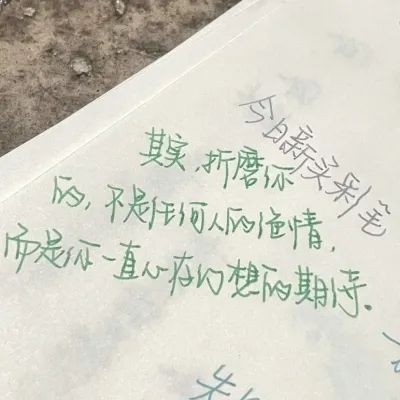 今日新买彩笔
其实,折磨你
的,不是任何人的绝情,
而是你一直心存幻想的期待。